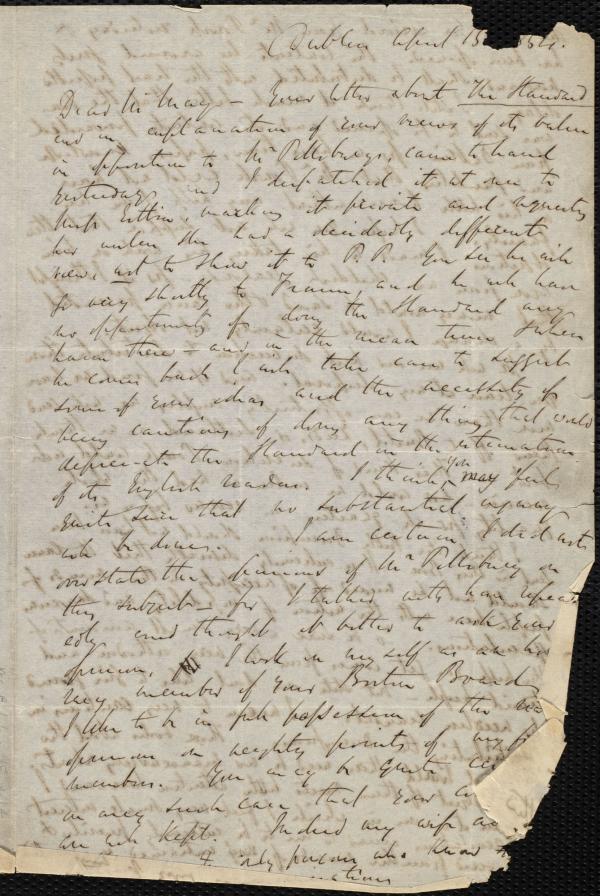 Dublin April 15 1854.
Dear Mr May - Your letter about The Standard
and in explanation of your views of its value
in opposition to Mr Pillsbury's, came to hand
yesterday and I despatched it at once to
Miss Estlin, marking it private and requesting
her unless she had a decidedly different
view, not to show it to P.P. You see he will
go very shortly to France, and he will have
no opportunity of doing the Standard any
harm there - and in the mean time when
he comes back I will take care to suggest
some of your ideas and the necessity of
being cautious of doing any thing that would
depreciate the Standard in the estimation
of its English readers. I think you may feel
quite sure that no substantial injury
will be done. I am certain I did not
overstate the opinions of Mr Pillsbury on
this subject - for I talked with him repeat-
edly and thought it better to ask your
opinion. I look on myself as an
member of your Boston Board
I like to be in full possession of the
opinions on weighty points of my
members. You may be quite
in any such case that your
are kept. Indeed my wife
only persons who know